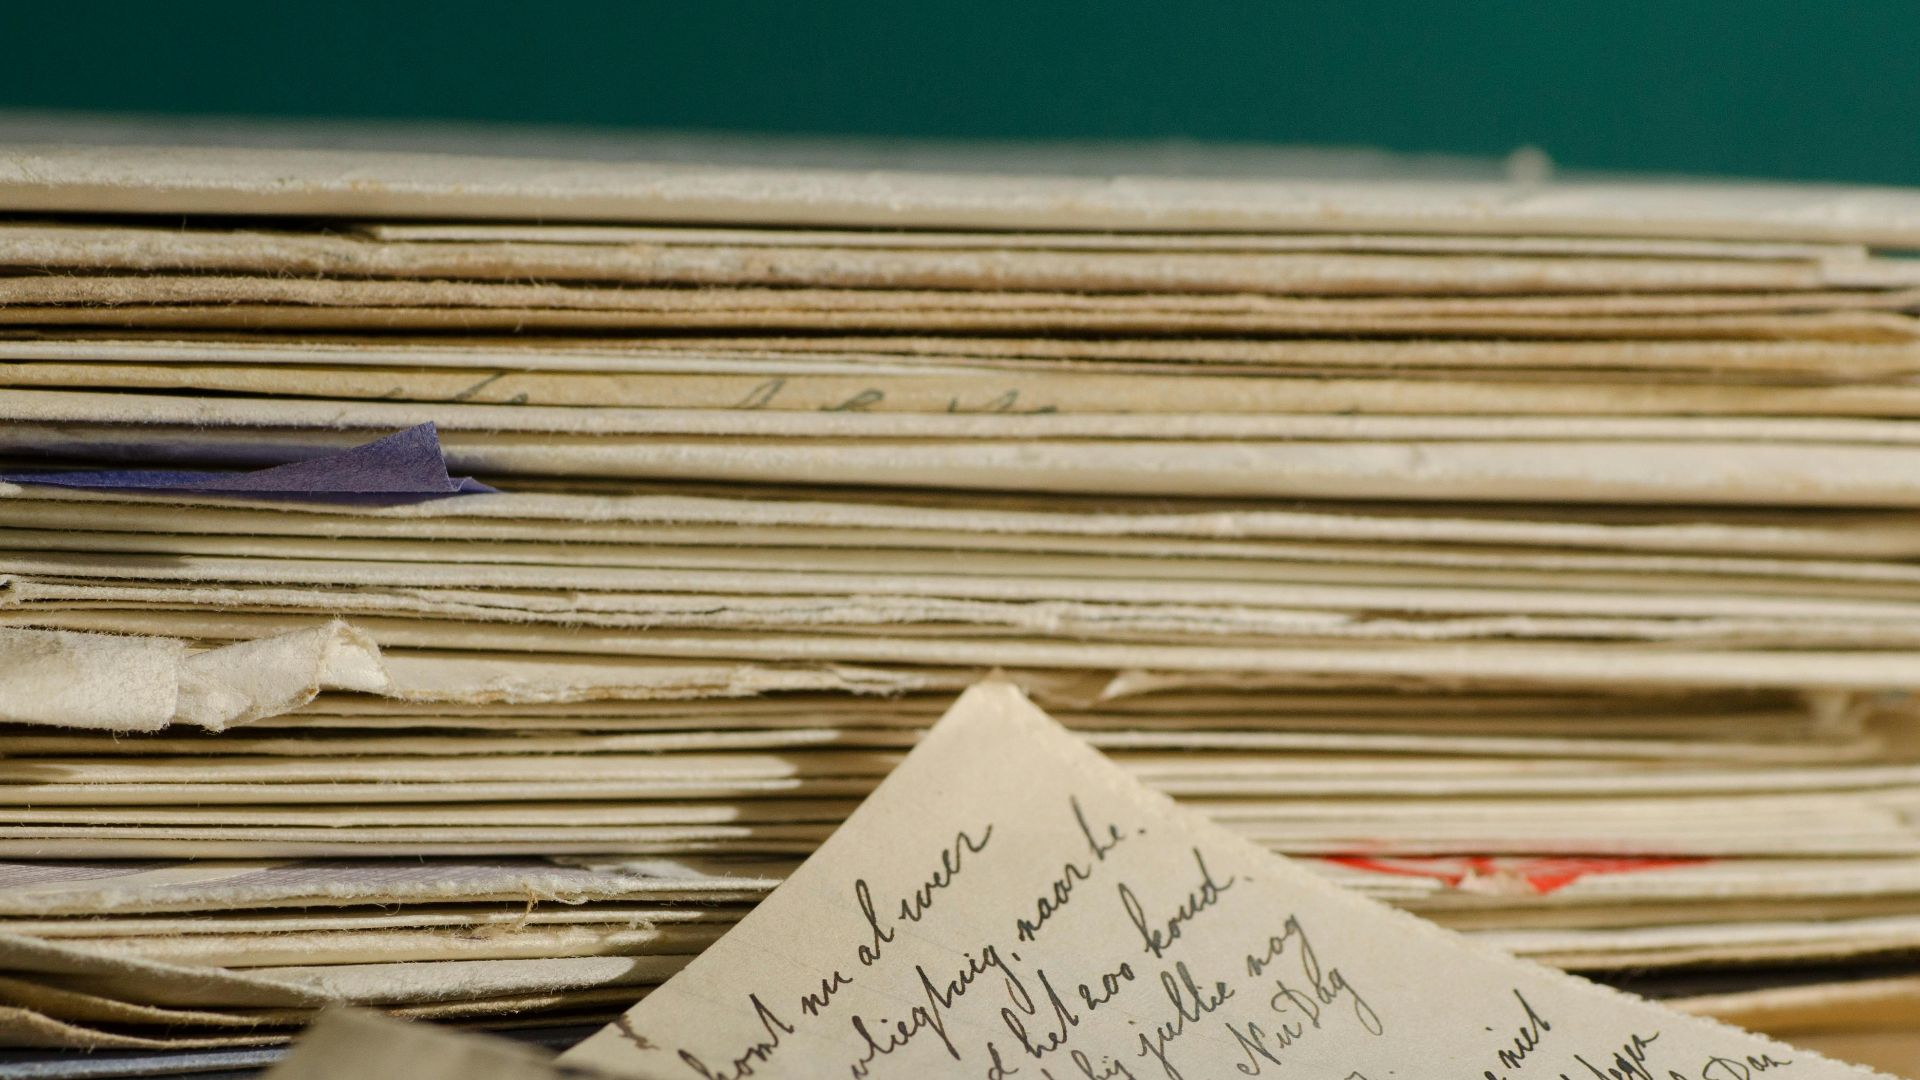 komt nu al weer
vliegtuig. naar he.
d het zoo koud.
bij jullie nog
Nu Dag
niet
Dan